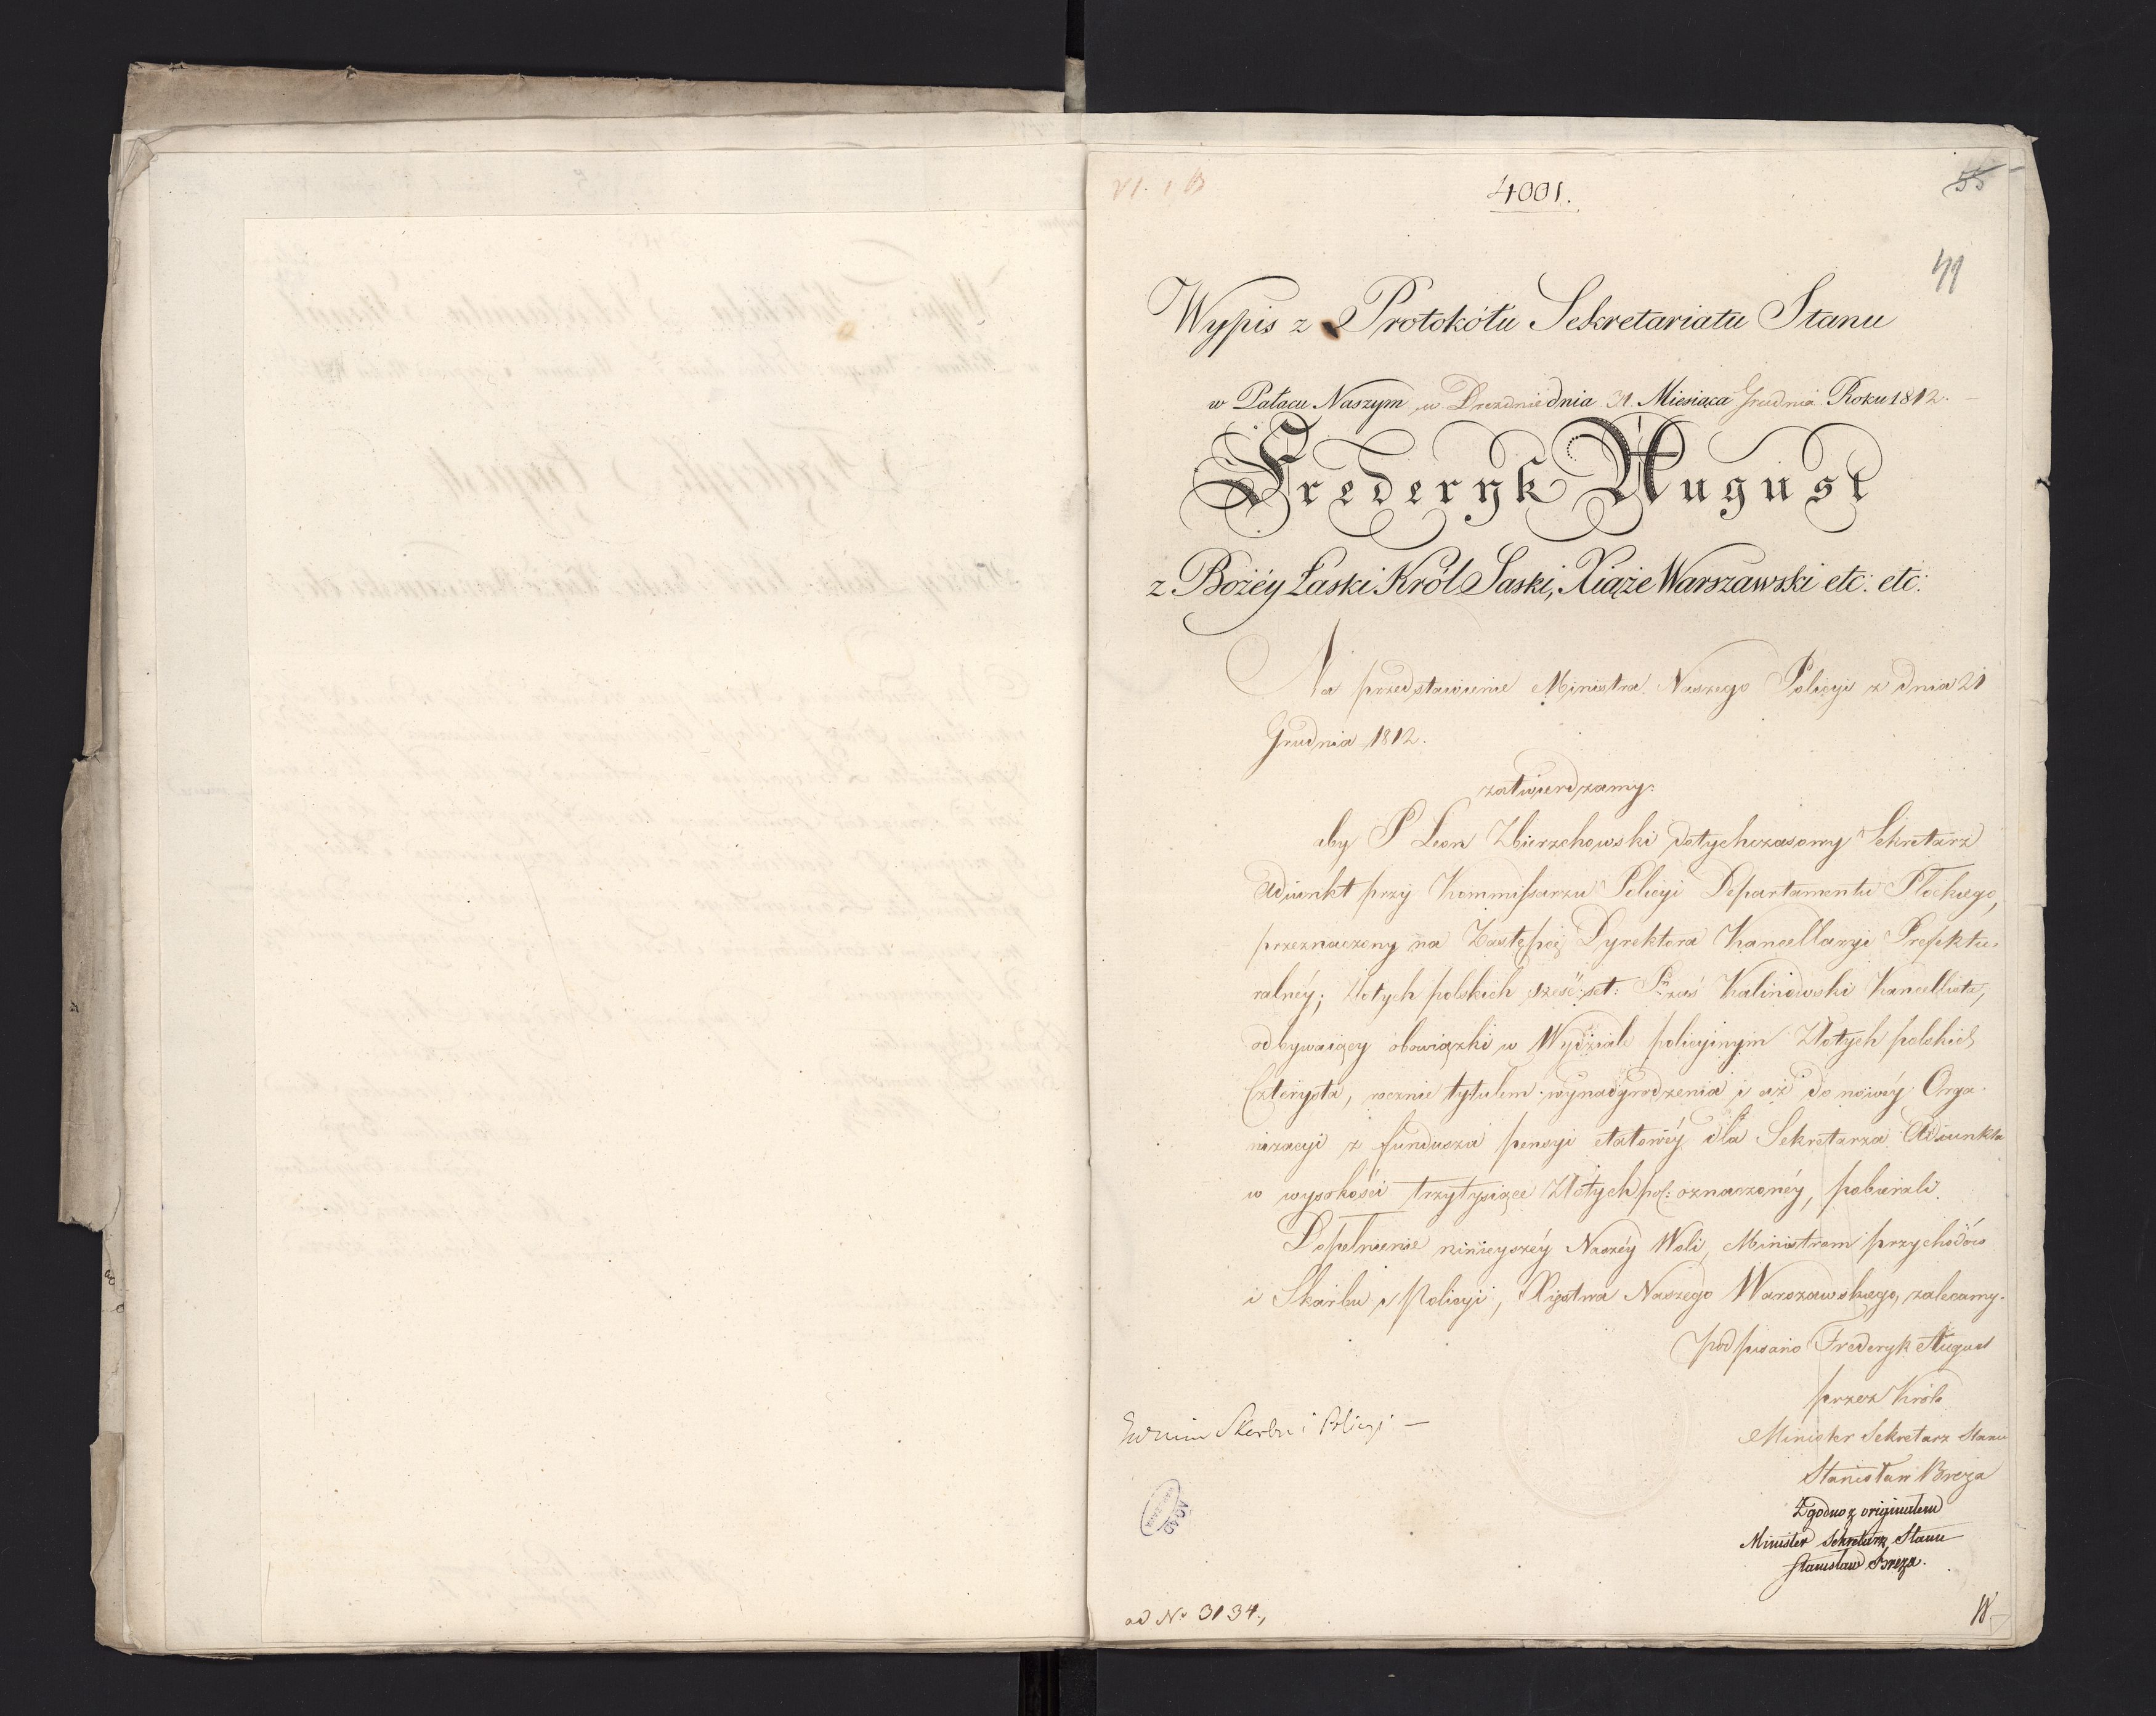 4001.
55
Wypis z Protokółu Sekretariatu Stanu
w Pałacu Naszym w Dreznie dnia 31 Miesiąca Grudnia Roku 1812.
Frederyk August
z Bożéy Łaski Król Saski, Xiąże Warszawski etc: etc:
Na przedstawienie Ministra Naszego Policyi z dnia 21
Grudnia 1812.
zatwierdzamy:
aby P Leon Zbierzchowski dotychczasowy Sekretarz
Adiunkt przy Kommissarzu Policyi Departamentu Płockiego,
przeznaczony na Zastępcę Dyrektora Kancellaryi Prefektu-
ralnéy; Złotych polskich sześćset: zaś Kalinowski Kancellista,
odbywaiący obowiązki w Wydziale policyinym Złotych polskich
Czterysta, rocznie tytułem wynadgrodzenia i aż do nowéy Orga-
nizacyi z funduszu pensyi etatowéy dla Sekretarza Adiunkta
w wysokości trzytysiące Złotych pol: oznaczonéy, pobierali.
Dopełnienie ninieyszéy Naszéy Woli, Ministrom przychodów
i Skarbu i Policyi, Xięstwa Naszego Warszawskiego, zalecamy.
podpisano Frederyk August
przez Króla
Minister Sekretarz Stanu
Stanisław Breza
Zgodno z originałem
Minister Sekretarz Stanu
Stanisław Breza.
Skarbu i Policyi —
AGAD
ad No 3134.,